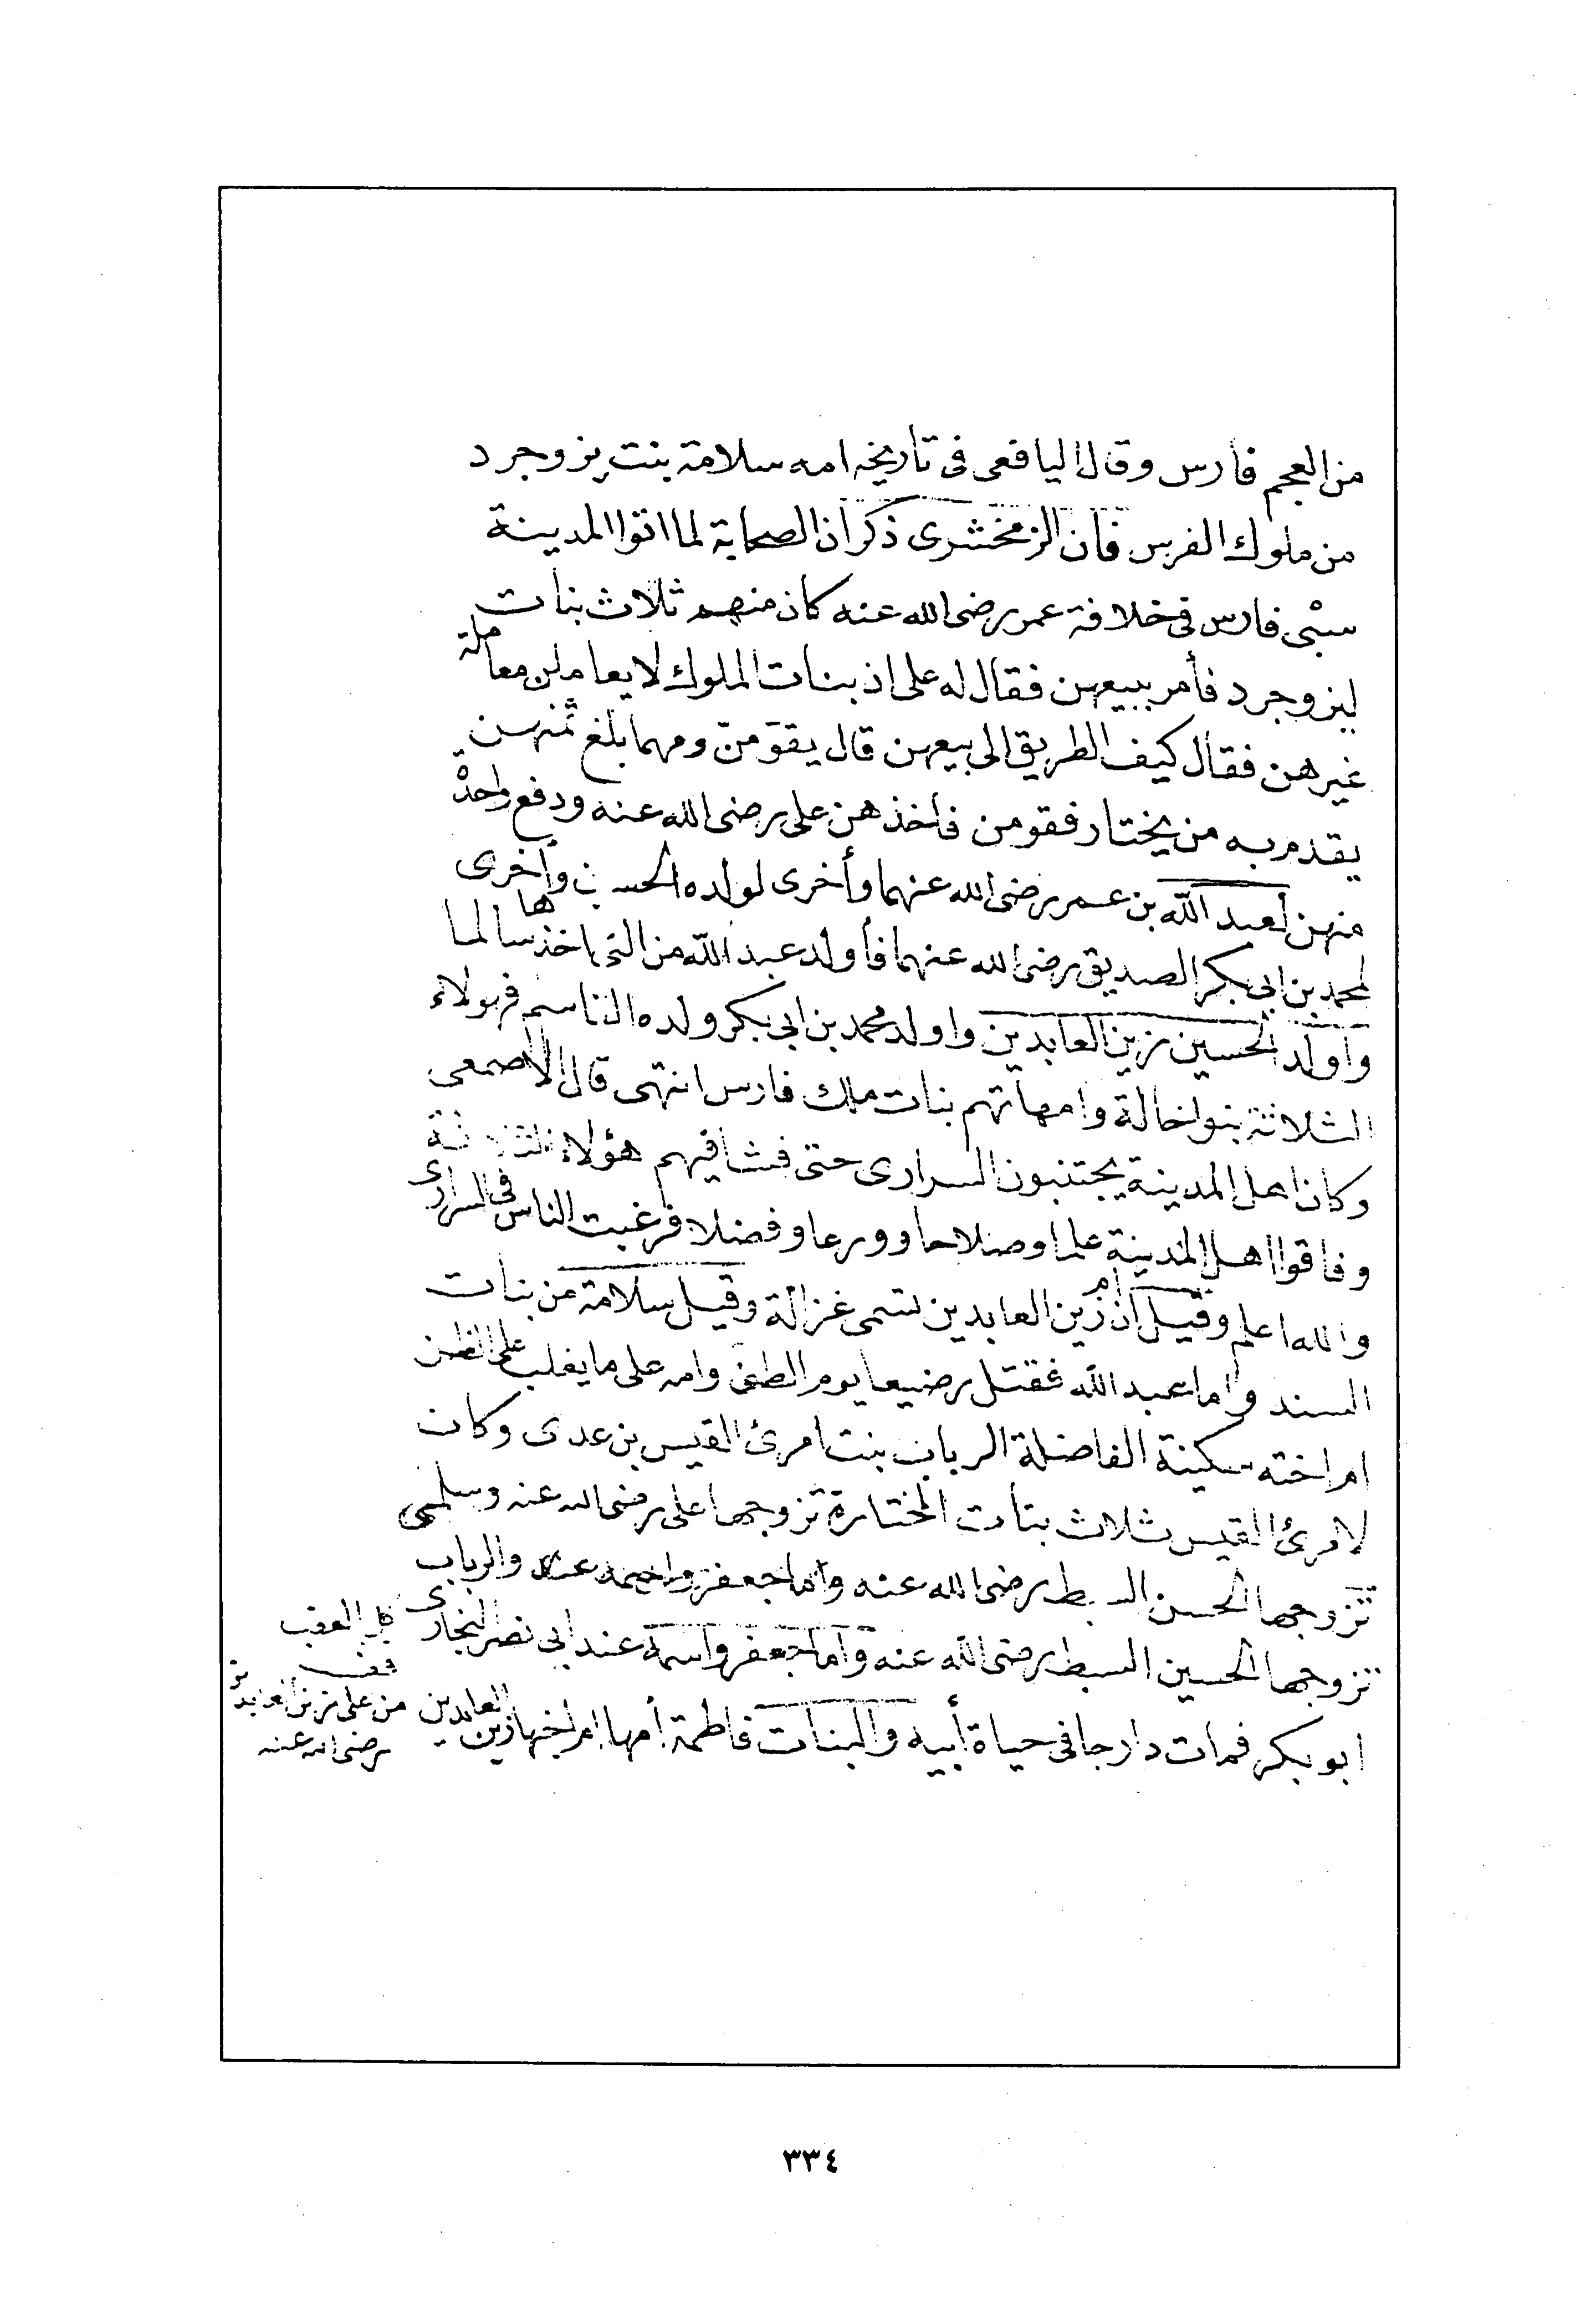 من العجم فارس وقال اليافعى فى تاريخه امه سلامة بنت يزوجرد
من ملوك الفرس فان الزمخشرى ذكر ان الصحابة لما اتوا المدينة
سبْى فارس فى خلافة عمر رضى الله عنه كان منهم ثلاث بنات
ليزوجرد فأمر ببيعهن فقال له على ان بنات الملوك لا يعاملن معاملة
غيرهن فقال كيف الطريق الى بيعهن قال يقوّمن ومهما بلغ ثمنهن
يقدم به من يختار فقومن فأخذهن على رضى الله عنه ودفع واحدة
منهن لعبد الله بن عمر رضى الله عنهما وأخرى لولده الحسين وأخرى
لمحمد بن ابى بكر الصديق رضى الله عنهما فأولد عبد الله من التى اخذها سالما
وأولد الحسين زين العابدين واولد محمد بن ابى بكر ولده القاسم فهولاء
الثلاثة بنو اخالة وامهاتهم بنات ملك فارس انتهى قال الاصمعى
وكان اهل المدينة يجتنبون السرارى حتى فشا فيهم هؤلاء الثلاثة
وفاقوا اهل المدينة علما وصلاحا وورعا وفضلا فرغبت الناس فى السرارى
والله اعلم وقيل ان أم زين العابدين تسمى غزالة وقيل سلامة من بنات
السند واما عبد الله فقتل رضيعا يوم الطف وامه على ما يغلب على الظن
ام اخته سكينة الفاضلة الرباب بنت امرئ القيس بن عدى وكان
لامرئ القيس ثلاث بنات المختارة تزوجها على رضى الله عنه وسلمى
تزوجها الحسن السبط رضى الله عنه واما جعفر عند والرباب
تزوجها الحسين السبط رضى الله عنه واما جعفر واسمه عند ابى نصر البخارى
ابو بكر فمات دارجا فى حياة أبيه والبنات فاطمة أمها ام اخيها زين العابدين
كل العقب
فقب
من على زين العابدين
رضى الله عنه
٣٣٤